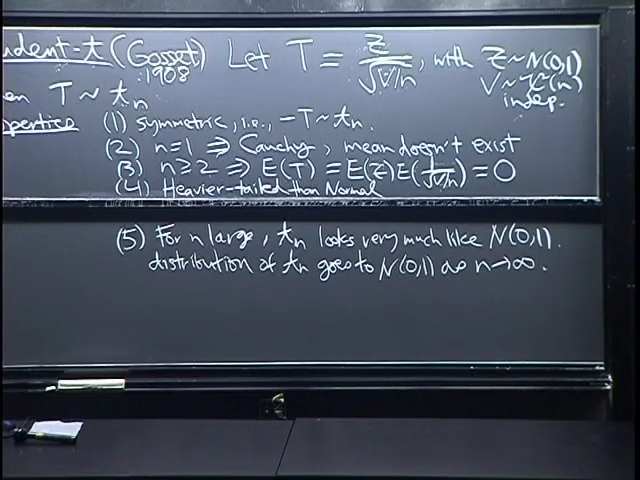 udent-t (Gosset) Let T = Z/√(V/n), with Z~N(0,1)
1908 V~χ²(n)
en T ~ tn indep.
operties (1) symmetric, i.e., -T ~ tn.
(2) n=1 ⇒ Cauchy, mean doesn't exist
(3) n≥2 ⇒ E(T) = E(Z)E(1/√(V/n)) = 0
(4) Heavier-tailed than Normal
(5) For n large, tn looks very much like N(0,1).
distribution of tn goes to N(0,1) as n→∞.